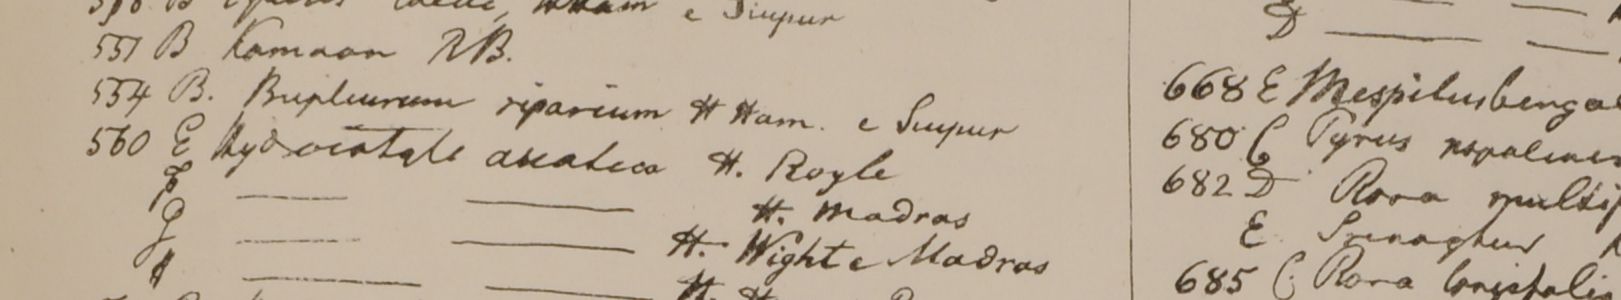 e Siupur
551 B Kamaon RB.
554 B. Bupleurum riparium H Ham. e Suupur
560 E Hydrocotyle asiatica H. Royle
F — — H. Madras
G — — H. Wight e Madras
H — — H.
D — —
668 E Mespilus benga
680 C Pyrus nepalens
682 D Rosa multip
E Srinaghur
685 C. Rosa